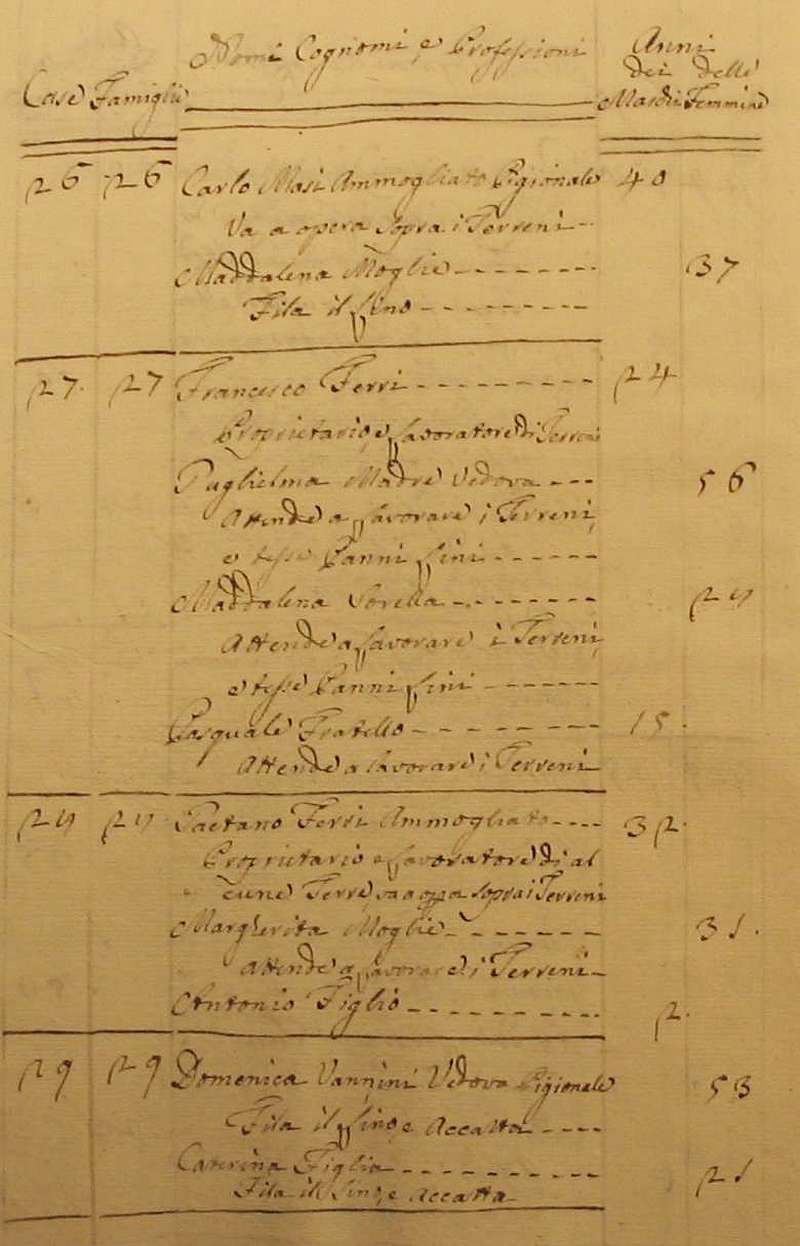 Nomi Cognomi e Professioni Anni
dei delle
Case Famiglie Maschi Femmine
26 26 Carlo Masi Ammogliato Pigionale 40
Va a opera sopra i Terreni
Maddalena Moglie 37
Fila il Lino
27 27 Francesco Ferri 24
Proprietario e Lavoratore di Terreni
Guglielma Madre Vedova 56
Attende a Lavorare i Terreni
e tesse Panni Lini
Maddalena Sorella 28
Attende a Lavorare i Terreni
e tesse Panni Lini
Pasquale Fratello 15
Attende a Lavorare i Terreni
28 28 Gaetano Ferri Ammogliato 32
Proprietario e Lavoratore d'al
cune Terre va a opa sopra i Terreni
Margherita Moglie 31
Attende a Lavorare i Terreni
Antonio Figlio 2
29 29 Domenica Vannini Vedova Pigionale 53
Fila il Lino e Accatta
Caterina Figlia 21
Fila il Lino, e Accatta